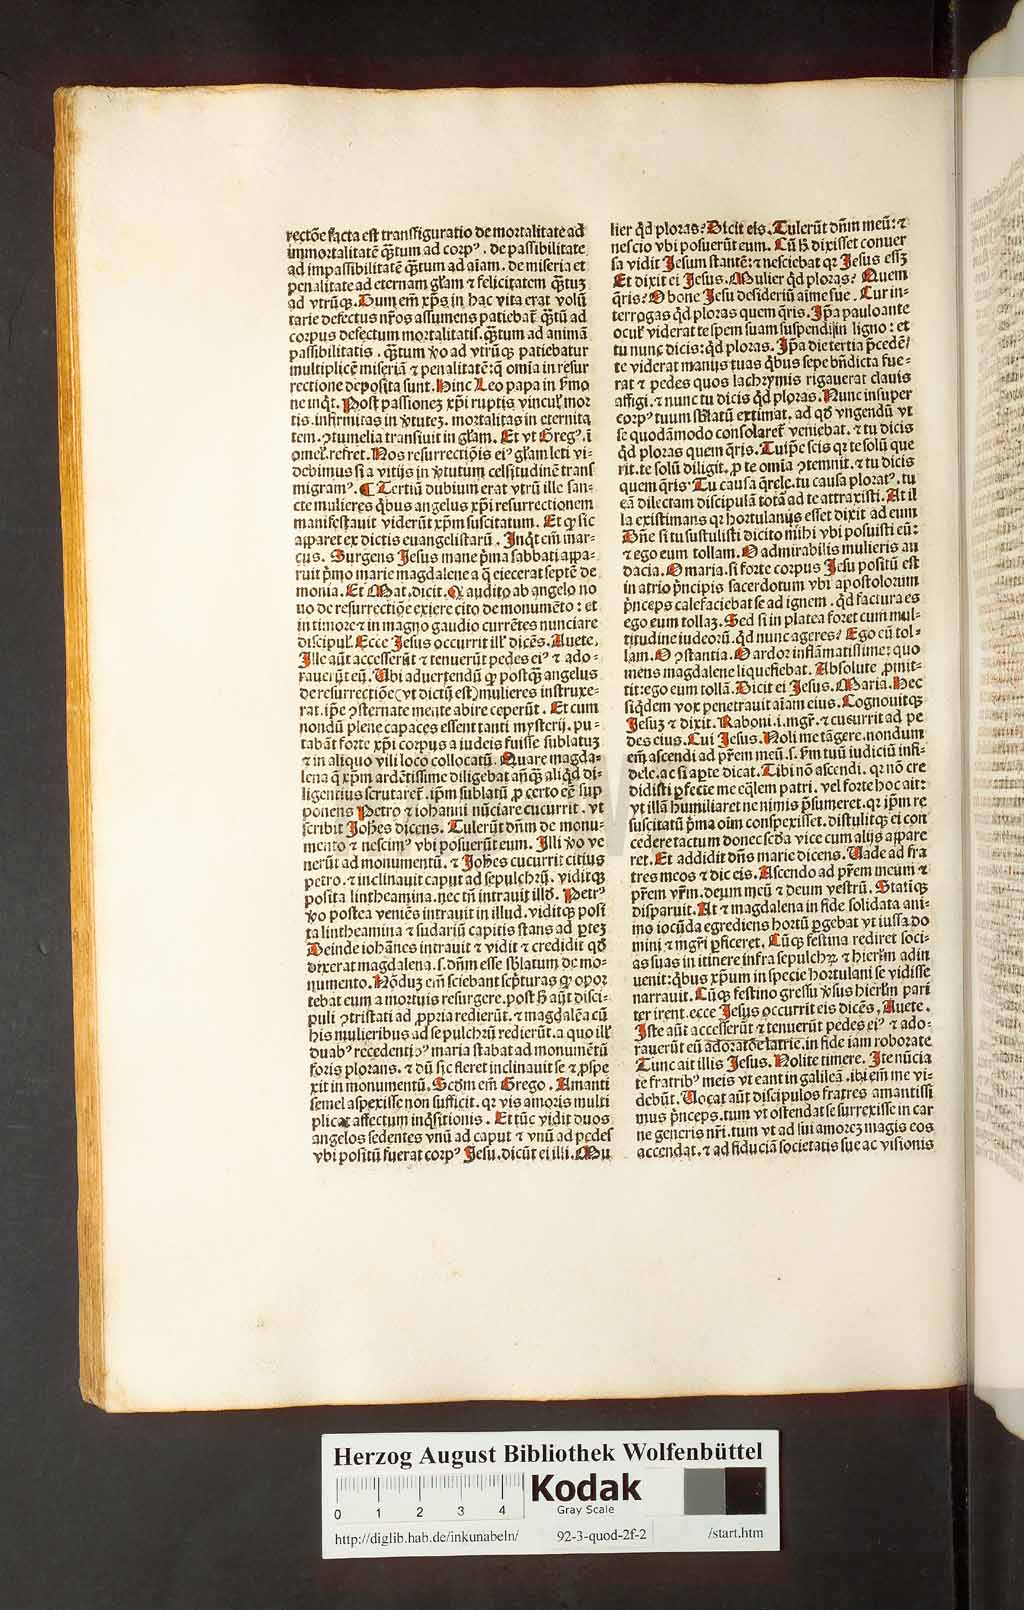 rectõe facta est transfiguratio de mortalitate ad
immortalitatẽ q̃tum ad corpꝰ. de passibilitate
ad impassibilitatẽ q̃tum ad aĩam. de miseria et
penalitate ad eternam gl̃am ⁊ felicitatem q̃tuꝫ
ad vtrũqꝫ. Dum em̃ xp̃s in hac vita erat volũ
tarie defectus nr̃os assumens patiebat̃ q̃tũ ad
corpus defectum mortalitatis. q̃tum ad animã
passibilitatis. q̃tum ṽo ad vtrũqꝫ patiebatur
multiplicẽ miseriã ⁊ penalitatẽ: q̃ omia in resur
rectione deposita sunt. Hinc Leo papa in ẜmo
ne inq̇t. Post passionez xp̃i ruptis vincul̕ mor
tis. infirmitas in ṽtuteꝫ. mortalitas in eternita
tem. ꝯtumelia transiuit in gl̃am. Et vt Gregꝰ. ĩ
omel̕. refret. Nos resurrectiõis eiꝰ gl̃am leti vi-
debimus si a vitijs in ṽtutum celsitudinẽ trans
migramꝰ. ¶ Tertiũ dubium erat vtrũ ille san-
cte mulieres q̇bus angelus xp̃i resurrectionem
manifestauit viderũt xp̃m suscitatum. Et ꝙ sic
apparet ex dictis euangelistarũ. Inq̇t em̃ mar-
cus. Surgens Jesus mane p̃ma sabbati appa-
ruit p̃mo marie magdalene a q̃ eiecerat septẽ de
monia. Et Mat. dicit. Q̃ audito ab angelo no
uo de resurrectiõe exiere cito de monumẽto: et
in timore ⁊ in magno gaudio currẽtes nunciare
discipul̕. Ecce Jesus occurrit ill̕ dicẽs. Auete.
Ille aũt accesserũt ⁊ tenuerũt pedes eiꝰ ⁊ ado-
rauerũt eũ. Ubi aduertendũ ꝙ postq̃ angelus
de resurrectiõe (vt dictũ est) mulieres instruxe-
rat. ip̃e ꝯsternate mente abire ceperũt. Et cum
nondũ plene capaces essent tanti mysterij. pu-
tabãt forte xp̃i corpus a iudeis fuisse sublatuꝫ
⁊ in aliquo vili loco collocatũ. Quare magda-
lena q̃ xp̃m ardẽtissime diligebat añq̃ aliq̇d di-
ligentius scrutaret̃. ip̃m sublatũ ꝓ certo eẽ sup
ponens Petro ⁊ iohanni nũciare cucurrit. vt
scribit Joh̃es dicens. Tulerũt dñm de monu-
mento ⁊ nescimꝰ vbi posuerũt eum. Illi ṽo ve
nerũt ad monumentũ. ⁊ Joh̃es cucurrit citius
petro. ⁊ inclinauit caput ad sepulchrũ. viditqꝫ
posita lintheamina. nec tñ intrauit illud. Petrꝰ
ṽo postea veniẽs intrauit in illud. viditqꝫ posi
ta lintheamina ⁊ sudariũ capitis stans ad ꝑteꝫ
Deinde iohãnes intrauit ⁊ vidit ⁊ credidit qḋ
dixerat magdalena. s. dñm esse sb̕latum de mo-
numento. Nõduꝫ em̃ sciebant sc̕pturas ꝙ opor
tebat eum a mortuis resurgere. post h̕ aũt disci-
puli ꝯtristati ad ꝓpria redierũt. ⁊ magdalẽa cũ
his mulieribus ad sepulchrũ redierũt. a quo ill̕
duabꝰ recedentiꝰ maria stabat ad monumẽtũ
foris plorans. ⁊ dũ sic fleret inclinauit se ⁊ ꝓspe
xit in monumentũ. Scd̃m em̃ Grego. Amanti
semel aspexisse non sufficit. qr vis amoris multi
plicat affectum inq̇sitionis. Et tũc vidit duos
angelos sedentes vnũ ad caput ⁊ vnũ ad pedes
vbi positũ fuerat corpꝰ Jesu. dicũt ei illi. Mu
lier q̇d ploras? Dicit eis. Tulerũt dñm meũ: ⁊
nescio vbi posuerũt eum. Cũ h̕ dixisset conuer
sa vidit Jesum stantẽ: ⁊ nesciebat qr Jesus esseꝫ
Et dixit ei Jesus. Mulier q̇d ploras? Quem
q̃ris? O bone Jesu desideriũ aĩme sue. Cur in-
terrogas q̇d ploras quem q̃ris. Ip̃a paulo ante
ocul̕ viderat te spem suam suspendi in ligno: et
tu nunc dicis: q̇d ploras. Ip̃a die tertia p̃cedẽt̕
te viderat manus tuas q̇bus sepe bñdicta fue-
rat ⁊ pedes quos lachrymis rigauerat clauis
affigi. ⁊ nunc tu dicis q̇d ploras. Nunc insuper
corpꝰ tuum sb̕latũ extimat. ad qḋ vngendũ vt
se quodãmodo consolaret̃ veniebat. ⁊ tu dicis
q̇d ploras quem q̃ris. Tu ip̃e scis qr te solũ que
rit. te solũ diligit. ꝓ te omia ꝯtemnit. ⁊ tu dicis
quem q̃ris. Tu causa q̃rele. tu causa ploratꝰ. tu
eã dilectam discipulã totã ad te attraxisti. At il
la existimans qr hortulanus esset dixit ad eum
Dñe si tu sustulisti dicito mihi vbi posuisti eũ:
⁊ ego eum tollam. O admirabilis mulieris au
dacia. O maria. si forte corpus Jesu positũ est
in atrio p̃ncipis sacerdotum vbi apostolorum
p̃nceps calefaciebat se ad ignem. q̇d factura es
ego eum tollaꝫ. Sed si in platea foret cum mul-
titudine iudeorũ. q̇d nunc ageres? Ego eũ tol-
lam. O ꝯstantia. O ardor inflãmatissime: quo
mens magdalene liquefiebat. Absolute ꝓmit-
tit: ego eum tollã. Dicit ei Jesus. Maria. Hec
siq̇dem vox penetrauit aĩam eius. Cognouitqꝫ
Jesuꝫ ⁊ dixit. Raboni. i. mgr̃. ⁊ cucurrit ad pe
des eius. Cui Jesus. Noli me tãgere. nondum
em̃ ascendi ad pr̃em meũ. s. ẜm tuũ iudiciũ infi-
dele. ac si aꝑte dicat. Tibi nõ ascendi. qr nõ cre
didisti ꝑfecte me eq̃lem patri. vel forte hoc ait:
vt illã humiliaret ne nimis p̃sumeret. qr ip̃m re
suscitatũ p̃ma oĩm conspexisset. distulitqꝫ ei con
cedere tactum donec scd̃a vice cum alijs appare
ret. Et addidit dñs marie dicens. Vade ad fra
tres meos ⁊ dic eis. Ascendo ad pr̃em meum ⁊
pr̃em vr̃m. deum meũ ⁊ deum vestrũ. Statiqꝫ
disparuit. At ⁊ magdalena in fide solidata ani-
mo iocũda egrediens hortũ ꝑgebat vt iussa do
mini ⁊ mgr̃i ꝑficeret. Cũqꝫ festina rediret soci-
as suas in itinere infra sepulchꝝ ⁊ hierl̃m adin
uenit: q̇bus xp̃um in specie hortulani se vidisse
narrauit. Cũqꝫ festino gressu ṽsus hierl̃m pari
ter irent. ecce Jesus occurrit eis dicẽs. Auete.
Iste aũt accesserũt ⁊ tenuerũt pedes eiꝰ ⁊ ado-
rauerũt eũ adoratõe latrie. in fide iam roborate
Tunc ait illis Jesus. Nolite timere. Ite nũcia
te fratribꝰ meis vt eant in galileã. ibi em̃ me vi-
debũt. Uocat aũt discipulos fratres amantissi
mus p̃nceps. tum vt ostendat se surrexisse in car
ne generis nr̃i. tum vt ad sui amoreꝫ magis eos
accendat. ⁊ ad fiduciã societatis sue ac visionis
Herzog August Bibliothek Wolfenbüttel
Kodak
Gray Scale
0 1 2 3 4
http://diglib.hab.de/inkunabeln/ 92-3-quod-2f-2 /start.htm